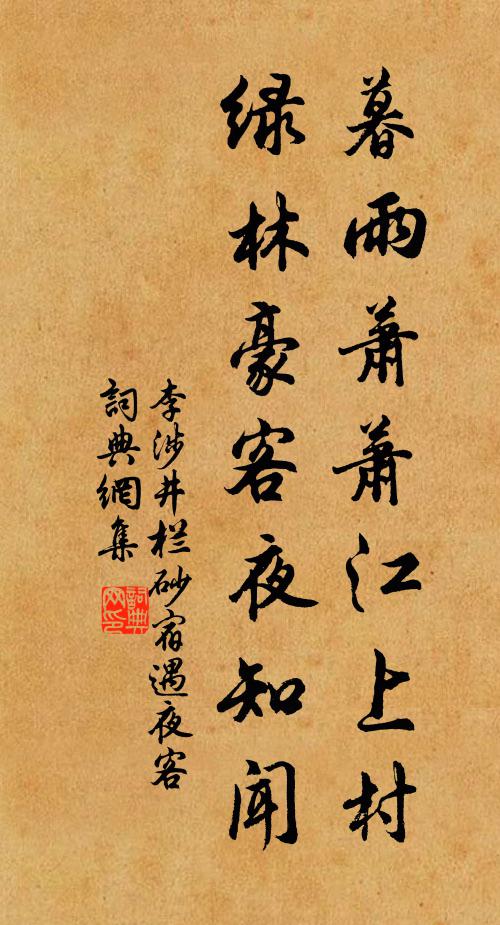 暮雨萧萧江上村
绿林豪客夜知闻
李涉井栏砂宿遇夜客
詞典網集
詞典网印